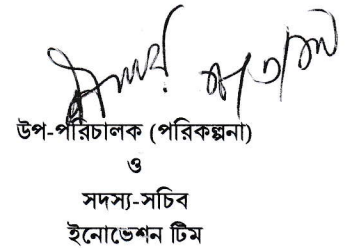 উপ-পরিচালক (পরিকল্পনা)
ও
সদস্য-সচিব
ইনোভেশন টিম